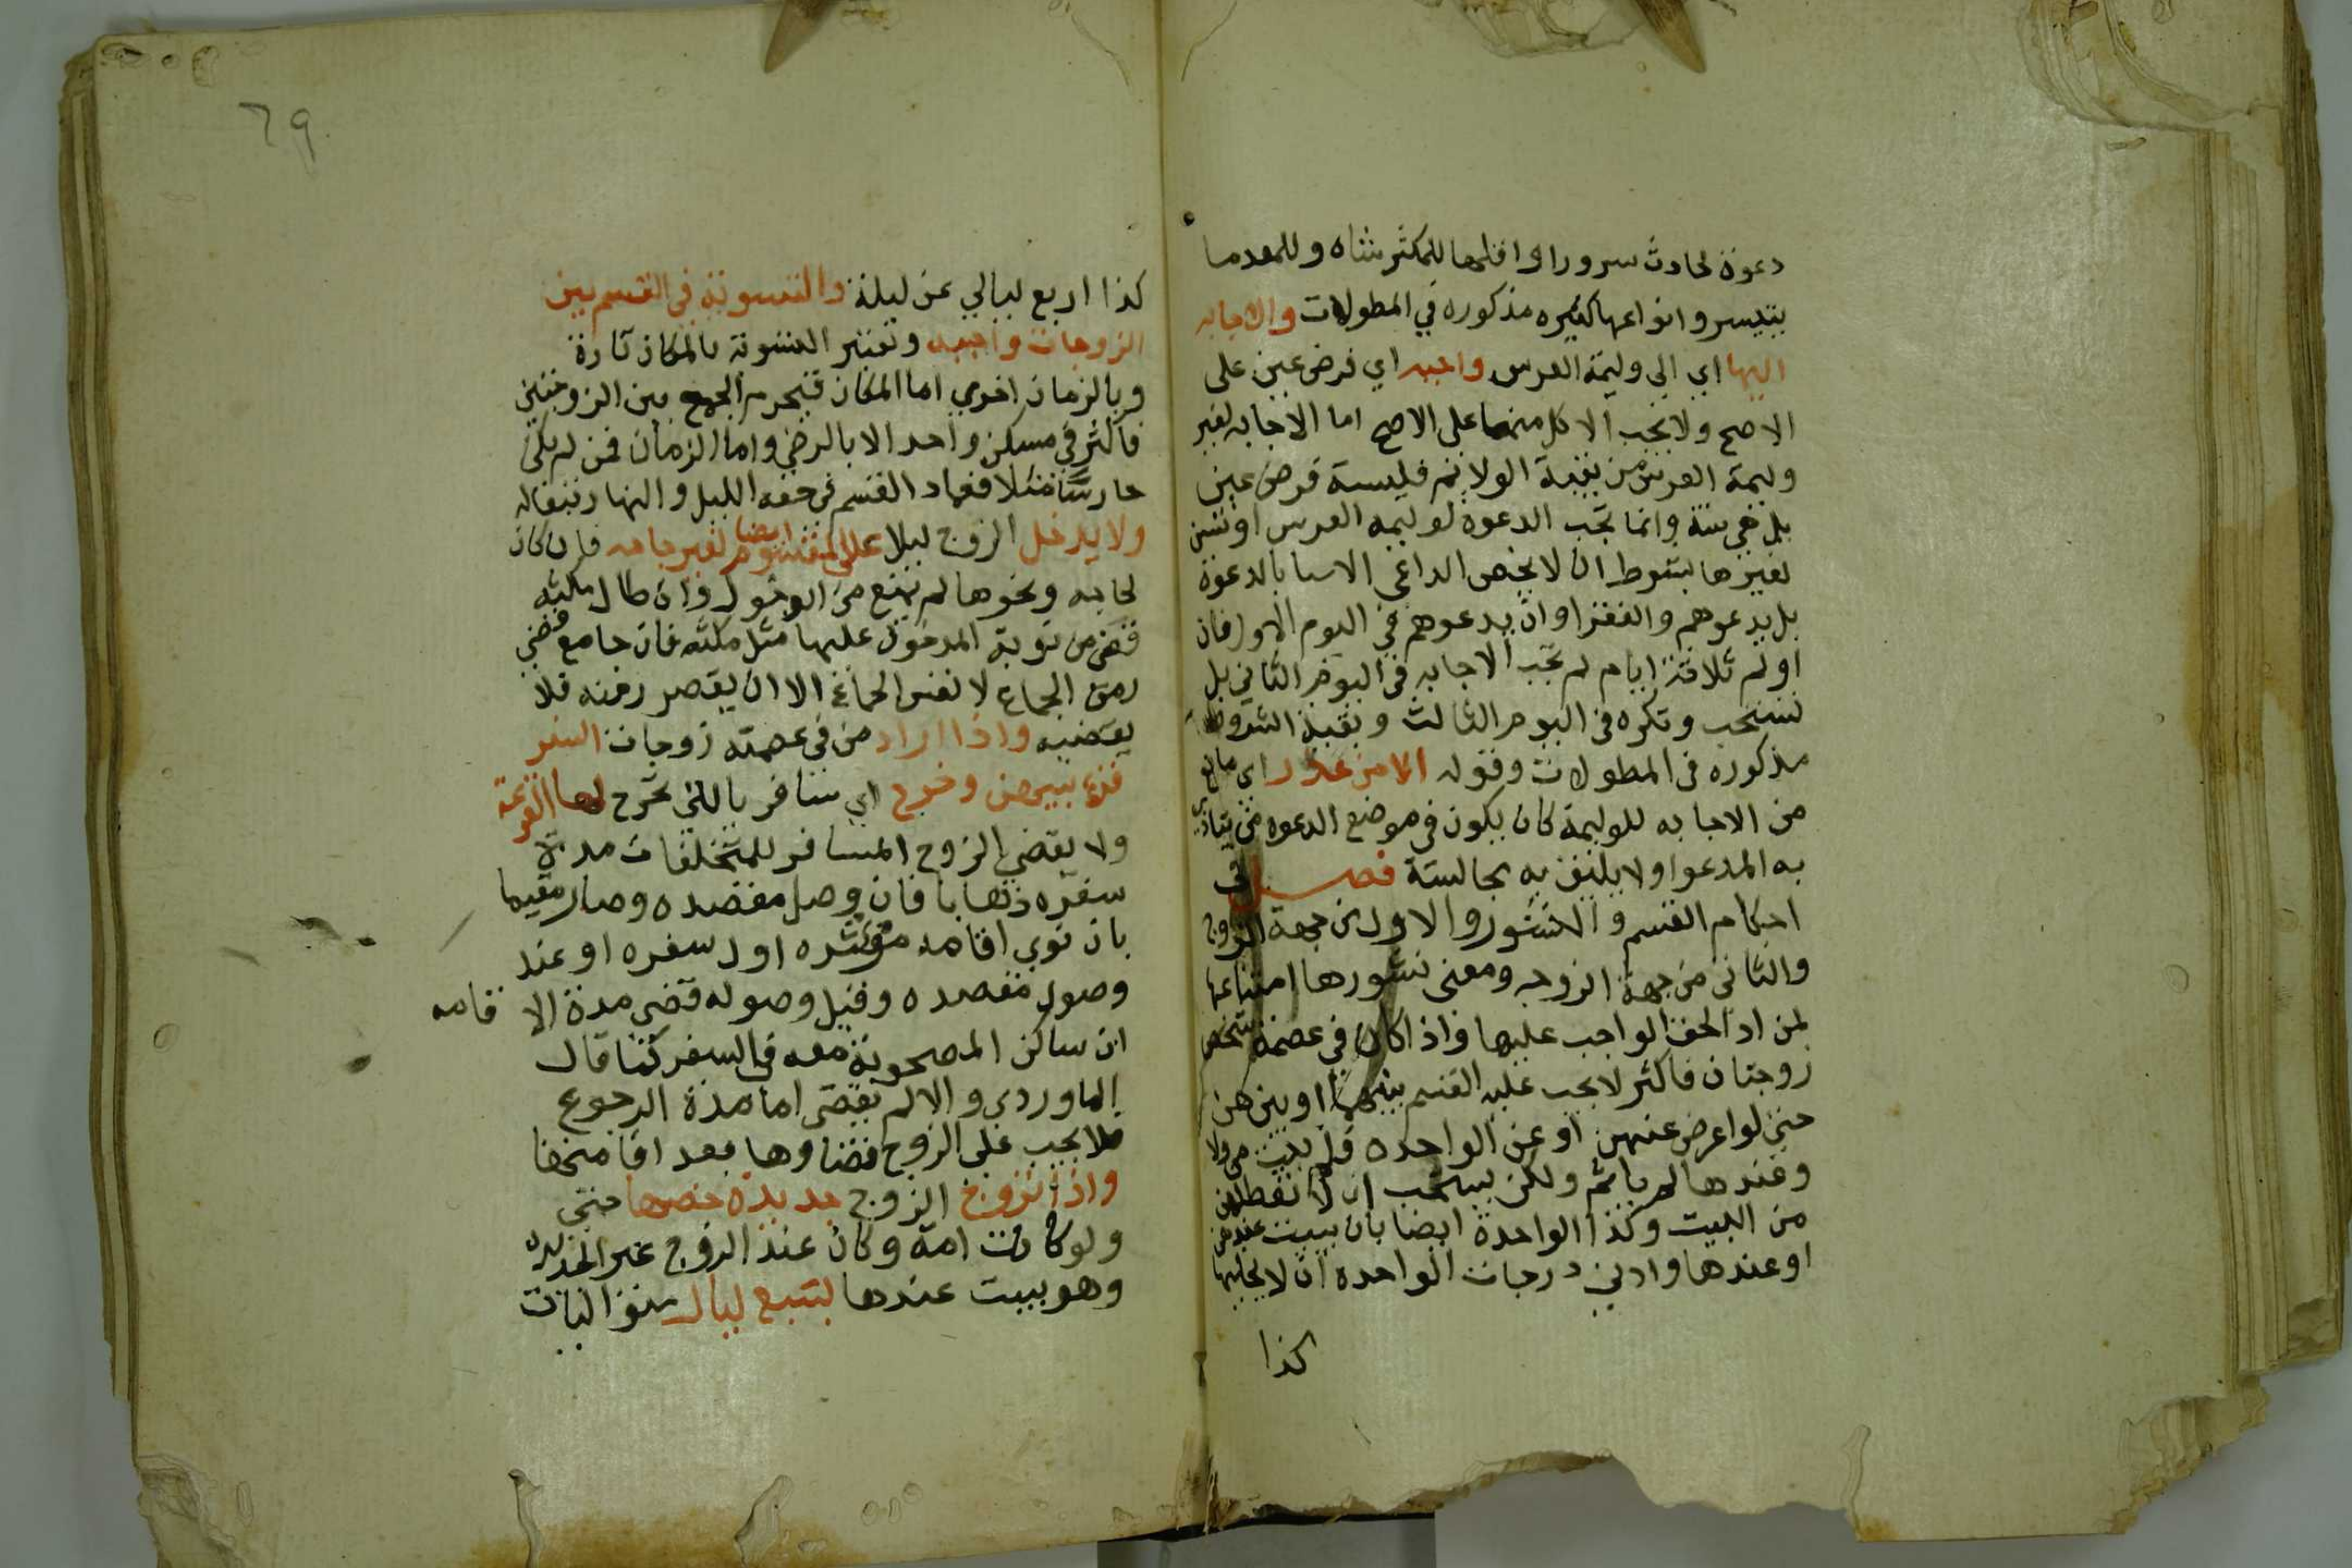 دعوة لحادث سرور او اقلها للمكثر شاه وللمعدما
يتيسر وانواعها كثيره مذكوره في المطولات والاجابه
اليها اي الي وليمة العرس واجبه اي فرض عين على
الاصح ولا يجب الاكل منها على الاصح اما الاجابه لغير
وليمة العرس من بقية الولائم فليسة فرض عين
بل هي سنة وانما تجب الدعوة لوليمه العرس او تسن
لغيرها بشرط ان لا يخص الداعي الاغنيا بالدعوة
بل يدعوهم والفقرا وان يدعوهم في اليوم الاول فان
اولم ثلاثة ايام لم تجب الاجابه في اليوم الثاني بل
تستحب وتكره في اليوم الثالث وبقية الشروط
مذكوره في المطولات وقوله الا من عذر اي مانع
من الاجابه للوليمة كان يكون في موضع الدعوه من يتاذي
به المدعو او لا يليق به مجالسته فصل في
احكام القسم والنشوز والاول من جهة الزوج
والثاني من جهة الزوجه ومعنى نشوزها امتناعها
لمن اد الحق الواجب عليها واذا كان في عصمة شخص
زوجتان فاكثر لا يجب عليه القسم بينهما او بين هن
حتى لو اعرض عنهن او عن الواحده فلم يبيت عندهن ولا
وعندها لم ياثم ولكن يستحب ان لا يعطلهن
من المبيت وكذا الواحدة ايضا بان يبيت عندهن
او عندها وادني درجات الواحده ان لا يخليها
كذا
٦٩
كذا اربع ليالي عن ليلة والتسوية في القسم بين
الزوجات واجبه وتعتبر التسوية بالمكان تارة
وبالزمان اخري اما المكان فيحرم الجمع بين الزوجتين
فاكثر في مسكن واحد الا بالرضي واما الزمان فمن لم يكن
حارسا مثلا فعماد القسم في حقه الليل والنهار تبع له
ولا يدخل الزوج ليلا على المقسوم ايضا لغير حاجه فان كان
لحاجه ونحوها لم يمنع من الدخول وان طال مكثه
قضي من نوبة المدخول عليها مثل مكثه فان جامع قضي
زمن الجماع لا نفس الجماع الا ان يقصر زمنه فلا
يقضيه واذا اراد من في عصمته زوجات السفر
قرع بينهن وخرج اي سافر بالتي تخرج لها القرعة
ولا يقضي الزوج المسافر للمتخلفات مدة
سفره ذهابا فان وصل مقصده وصار مقيما
بان نوي اقامه موثره اول سفره او عند
وصول مقصده وقبل وصوله قضي مدة الاقامه
ان ساكن المصحوبة معه في السفر كما قال
الماوردي والا لم يقض اما مدة الرجوع
فلا يجب على الزوج قضاوها بعد اقامتها
واذا تزوج الزوج جديدة خصها حتي
ولو كانت امة وكان عند الزوج غير الجديده
وهو يبيت عندها بسبع ليال متواليات